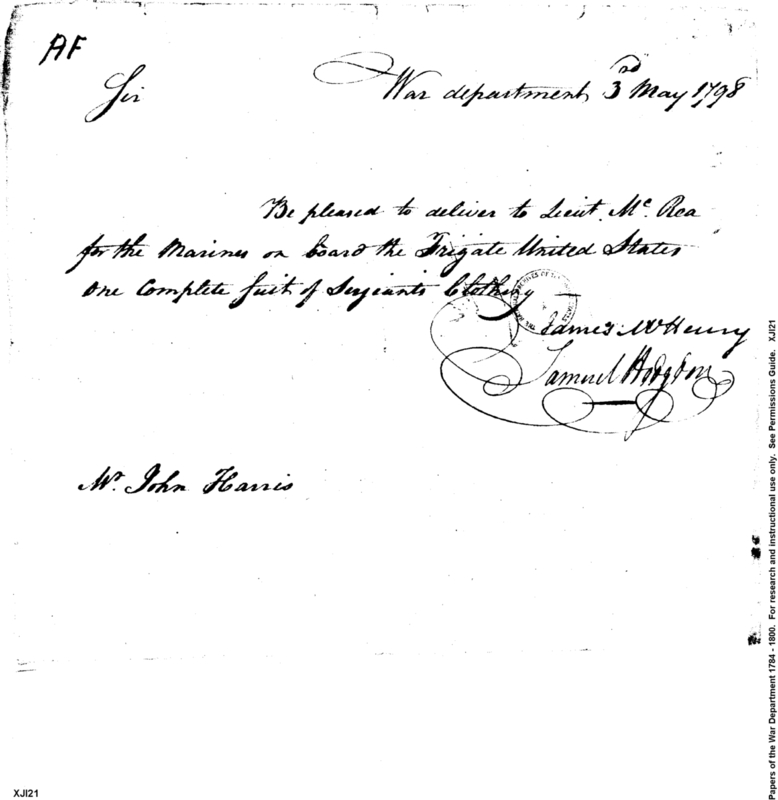 AF
War department 3rd May 1798
Sir
Be pleased to deliver to Lieut. Mc. Rea
for the Marines on board the Frigate United States
One Complete Suit of Sergeants Clothing
James McHenry
Samuel Hodgdon
Mr. John Harris
XJI21
Papers of the War Department 1784 - 1800. For research and instructional use only. See Permissions Guide. XJI21